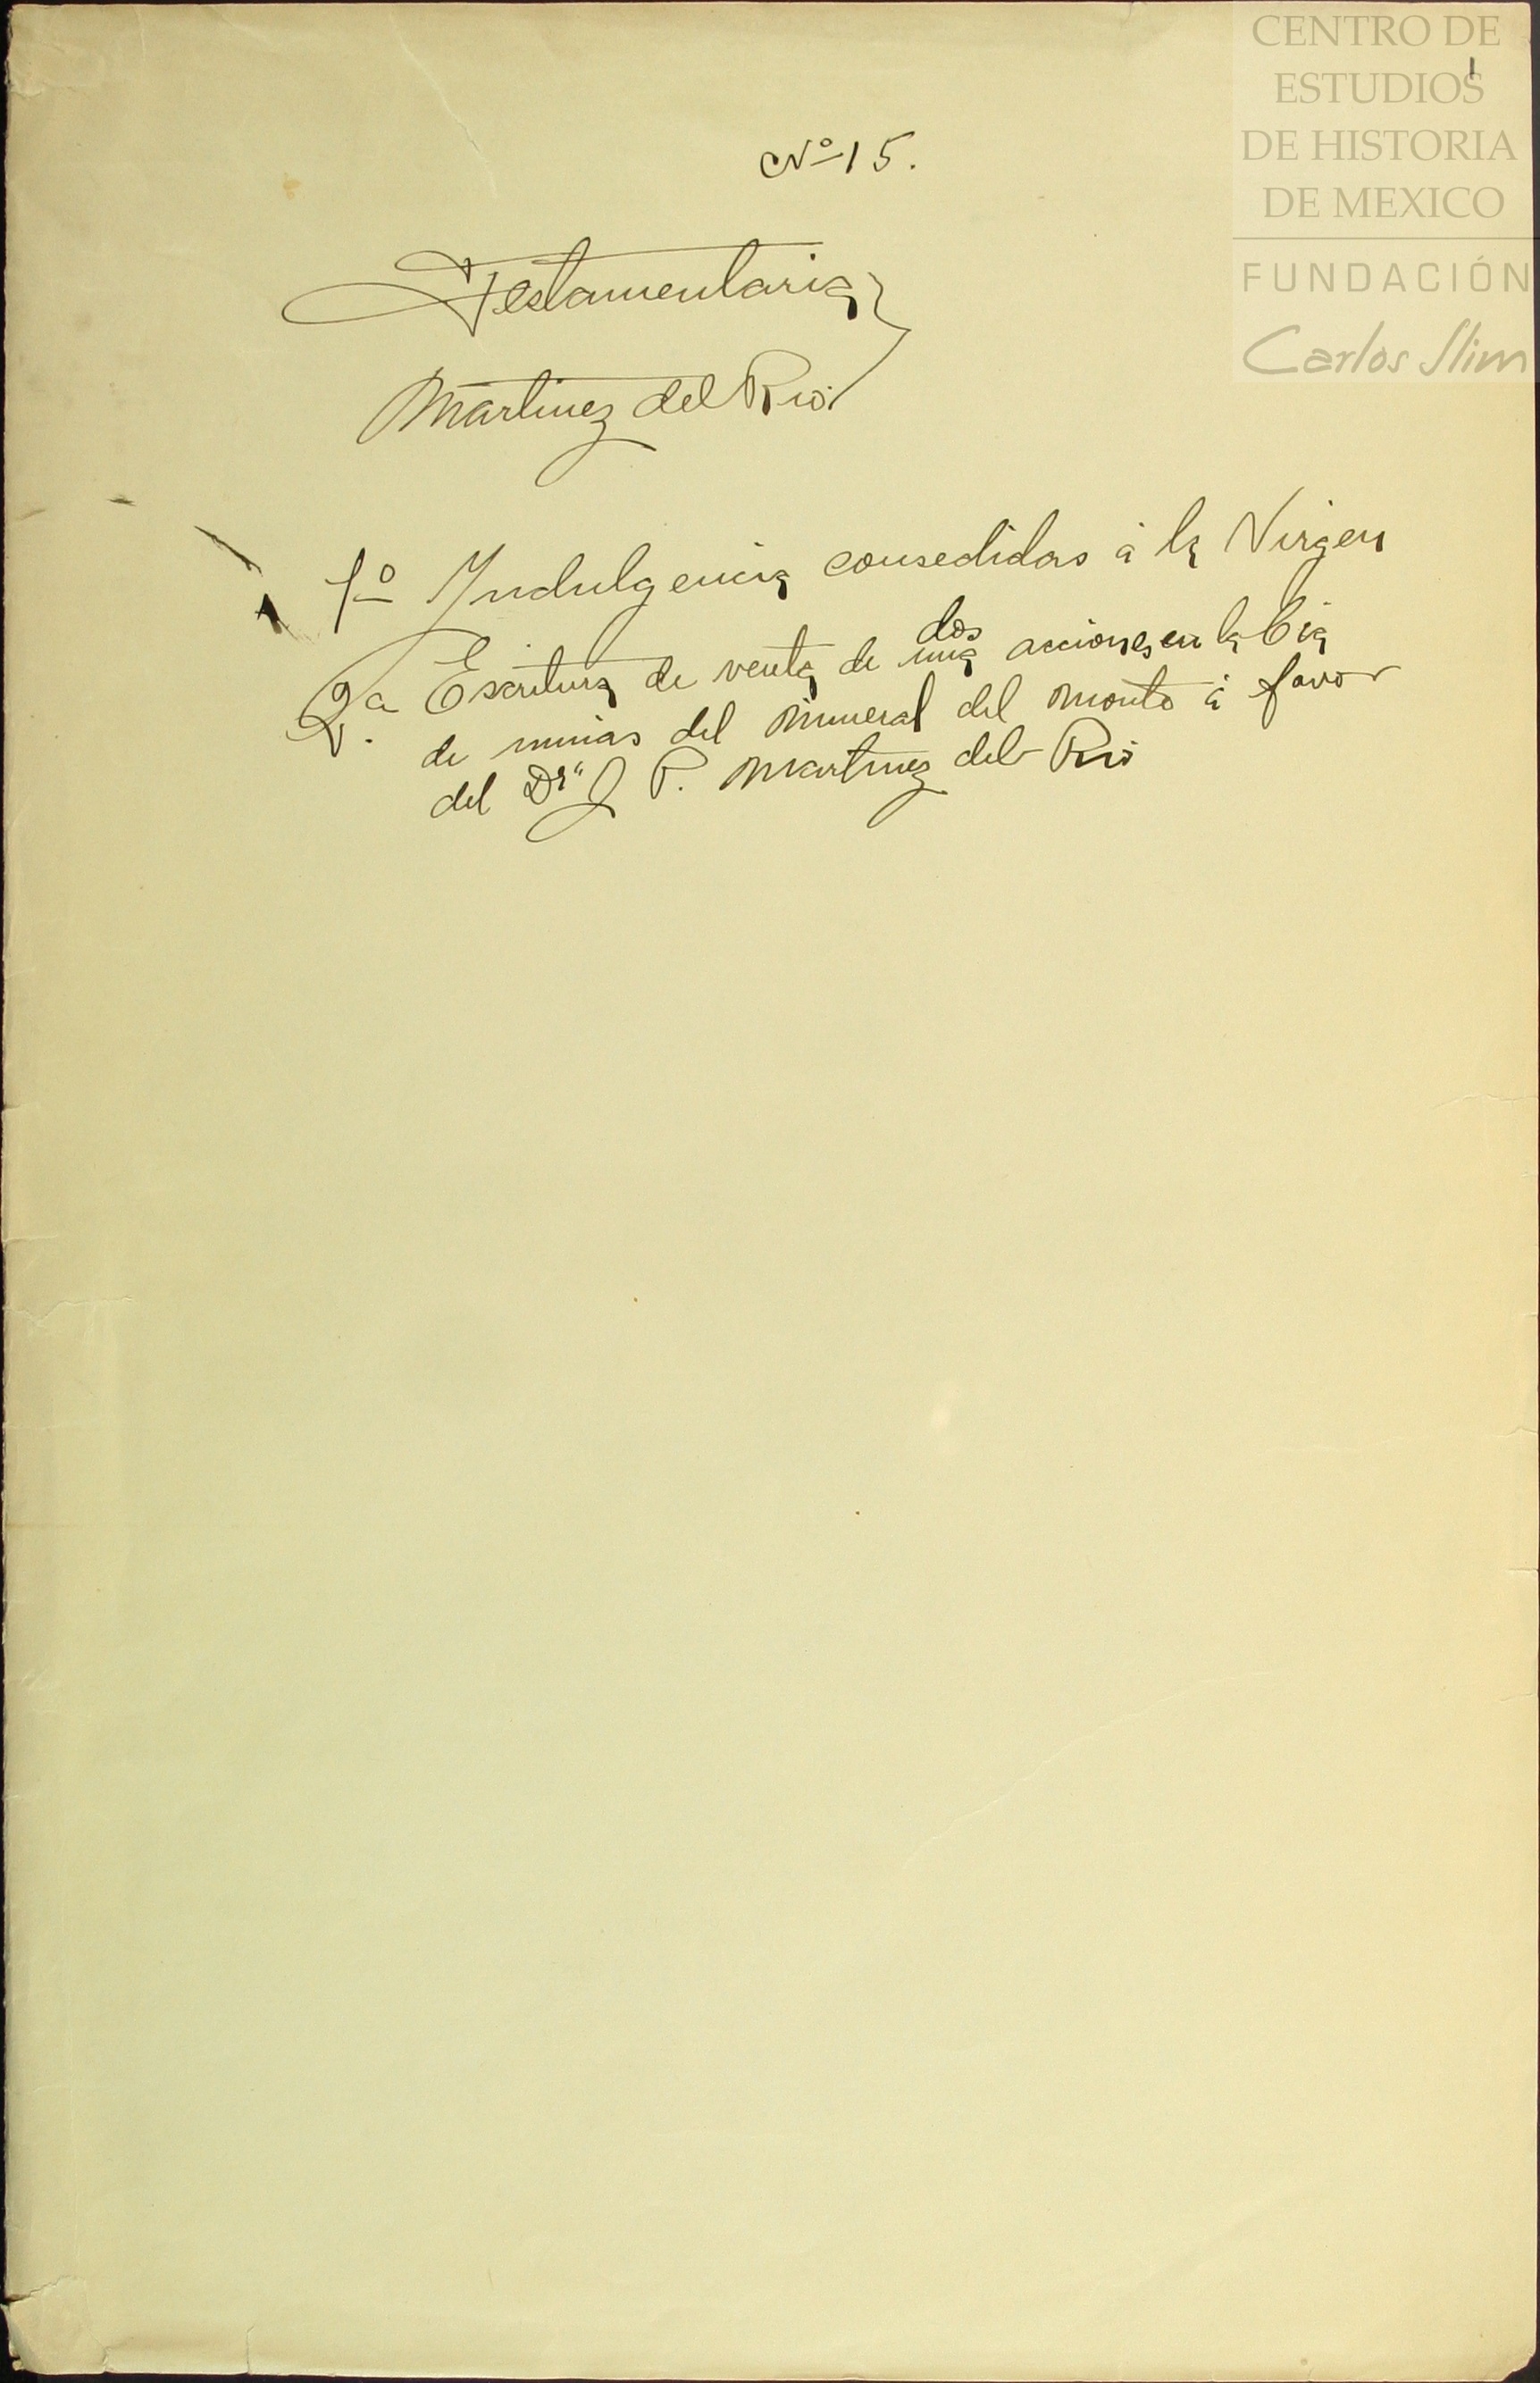 CENTRO DE
ESTUDIOS
DE HISTORIA
DE MEXICO
FUNDACIÓN
Carlos Slim
1
Nº 15.
Testamentaria
Martinez del Rio
1º Indulgencia consedidas á la Virgen
2ª. Escritura de venta de una dos acciones en la Cia
de minas del Mineral del Monte á favor
del Dr. J. P. Martinez del Rio